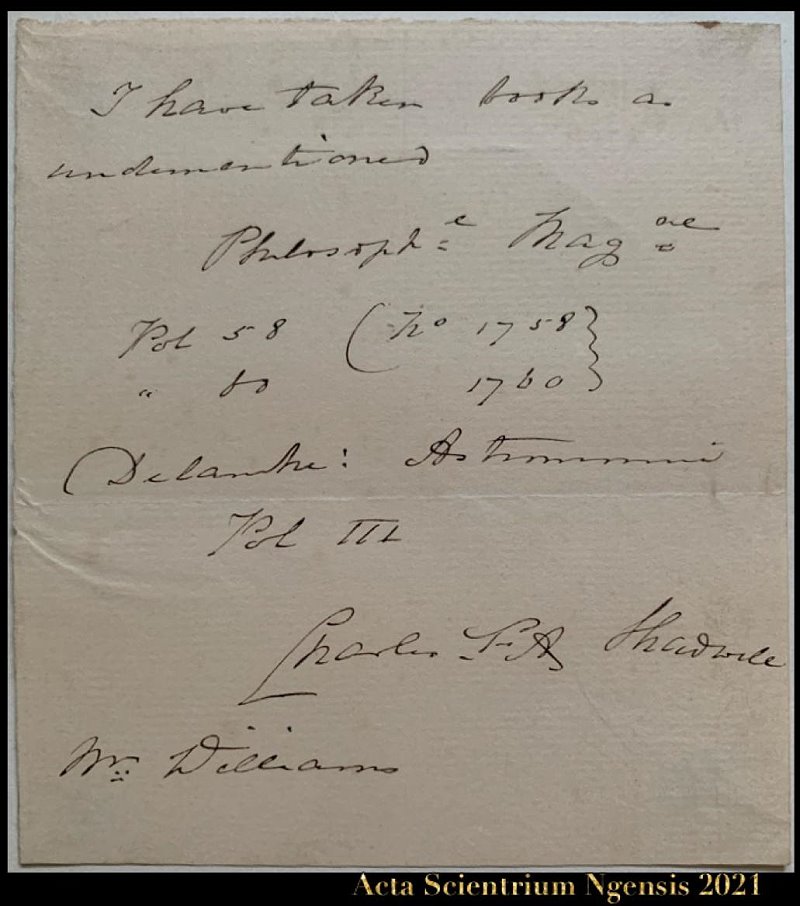 I have taken books as
undermentioned
Philosoph e Mag ne
Vol 58 (No 1758}
" 60 1760}
Delambre: Astronomie
Vol III
Charles F A Shadwell
Mr. Williams
Acta Scientrium Ngensis 2021